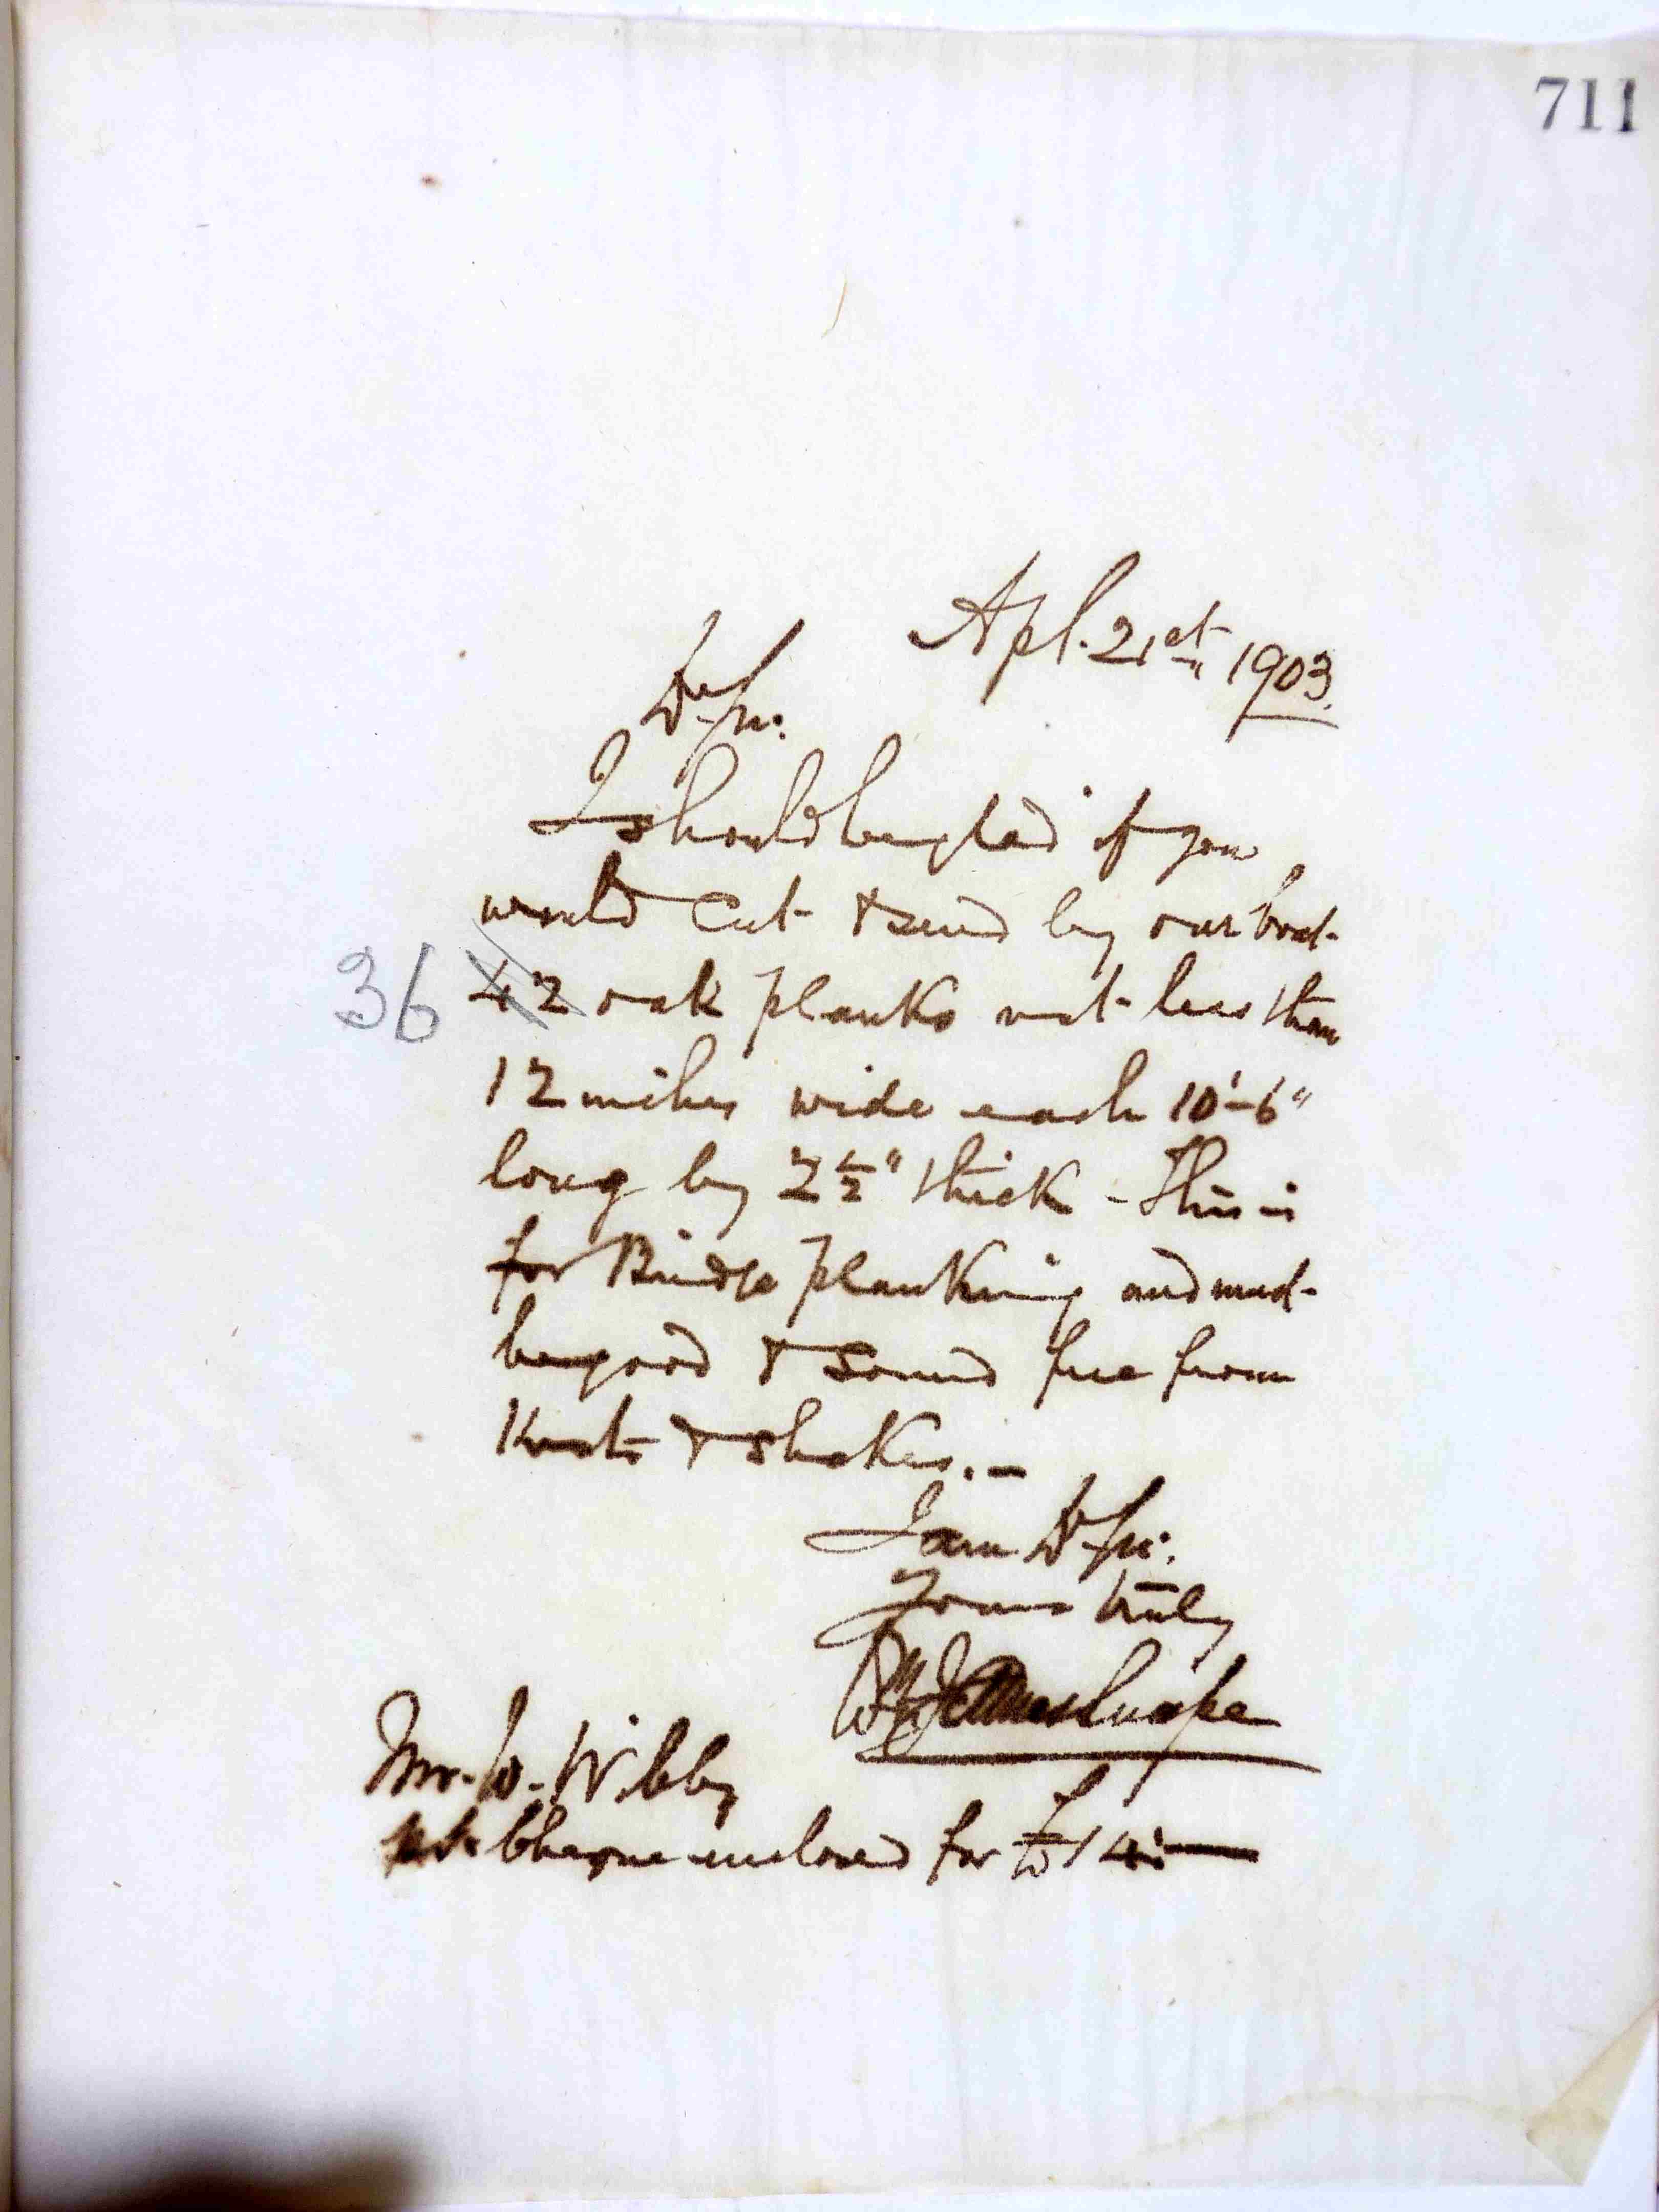 711
Apl. 21st 1903.
Dr Sir.
I should be glad if you
would cut & send by our boat
36 42 oak planks not less than
12 inches wide each 10'-6"
long by 2 1/2" thick - This is
for Bridge planking and must
be good & sound free from
Knots & shakes. -
I am Dr Sir.
Yours truly
Mr. W. Wibby
Cheque enclosed for £